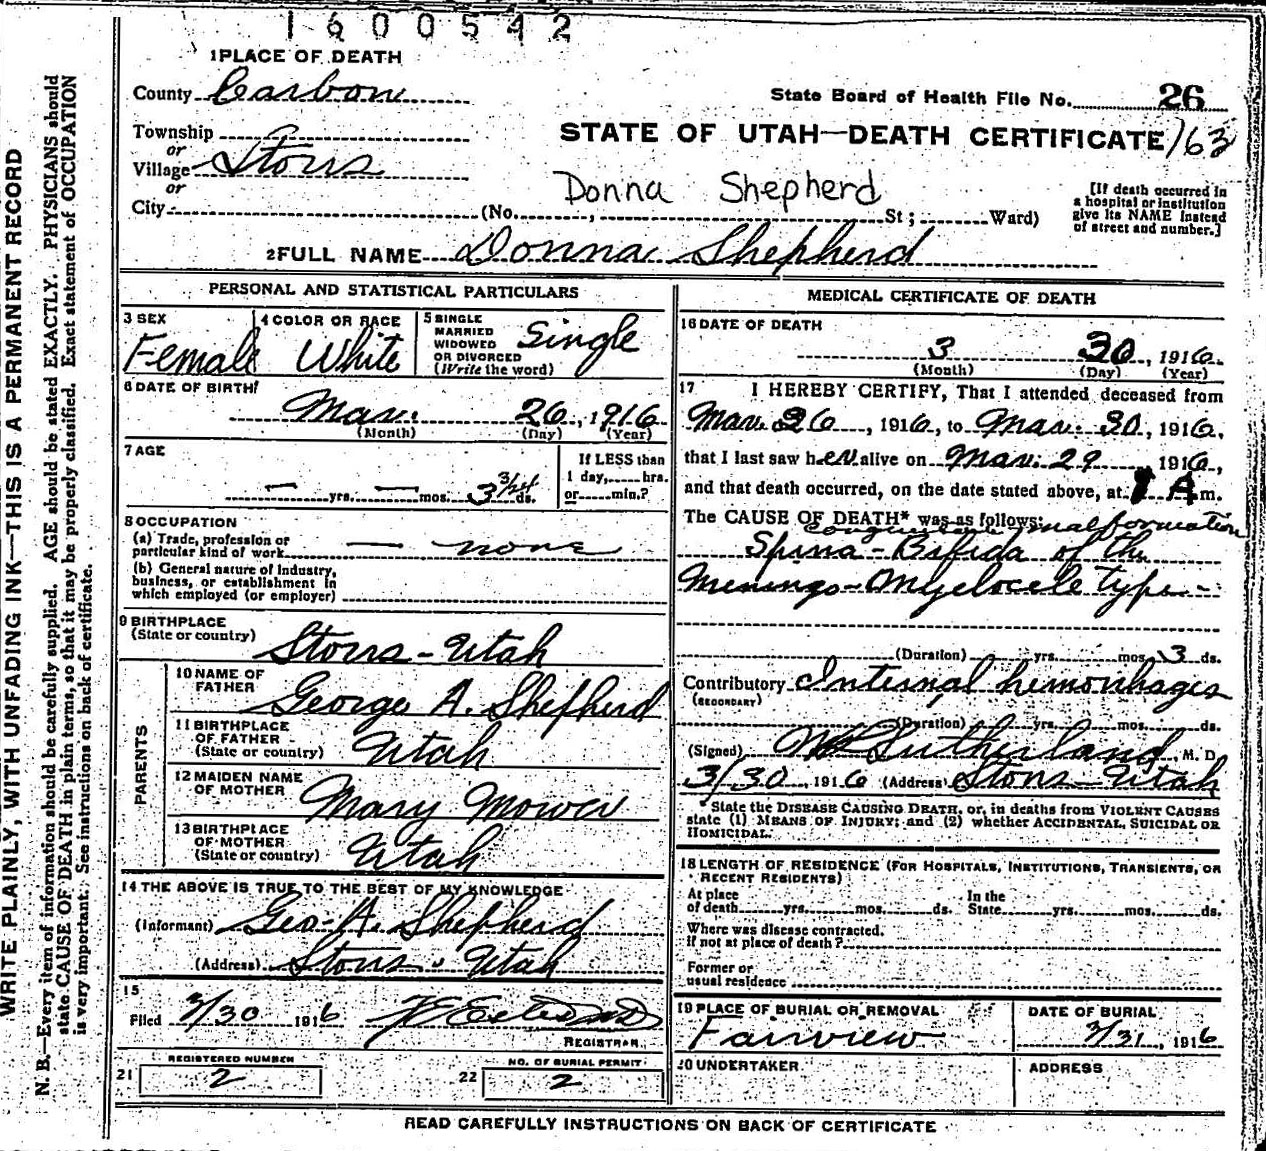 1600542
1 PLACE OF DEATH
County Carbon
State Board of Health File No. 26
Township
or
Village Storrs
or
City
STATE OF UTAH—DEATH CERTIFICATE 163
Donna Shepherd
(No. , St; Ward)
[If death occurred in
a hospital or institution
give its NAME instead
of street and number.]
2 FULL NAME Donna Shepherd
PERSONAL AND STATISTICAL PARTICULARS
3 SEX
Female
4 COLOR OR RACE
White
5 SINGLE
MARRIED
WIDOWED
OR DIVORCED
(Write the word)
Single
6 DATE OF BIRTH
Mar. 26, 1916
(Month) (Day) (Year)
7 AGE
— yrs. — mos. 3 3/24 ds.
If LESS than
1 day, hrs.
or min.?
8 OCCUPATION
(a) Trade, profession or
particular kind of work — none
(b) General nature of Industry,
business, or establishment in
which employed (or employer)
9 BIRTHPLACE
(State or country) Storrs - Utah
PARENTS
10 NAME OF
FATHER George A. Shepherd
11 BIRTHPLACE
OF FATHER
(State or country) Utah
12 MAIDEN NAME
OF MOTHER Mary Mower
13 BIRTHPLACE
OF MOTHER
(State or country) Utah
14 THE ABOVE IS TRUE TO THE BEST OF MY KNOWLEDGE
(Informant) Geo. A. Shepherd
(Address) Storrs - Utah
15
Filed 3/30 1916
REGISTRAR.
REGISTERED NUMBER
21 2
NO. OF BURIAL PERMIT
22 2
MEDICAL CERTIFICATE OF DEATH
16 DATE OF DEATH
3 30, 1916.
(Month) (Day) (Year)
17 I HEREBY CERTIFY, That I attended deceased from
Mar. 26, 1916, to Mar. 30, 1916,
that I last saw her alive on Mar. 29 1916,
and that death occurred, on the date stated above, at 1 A m.
The CAUSE OF DEATH* was as follows:
congenital malformation
Spina-Bifida of the
Meningo-Myelocele type -
(Duration) yrs. mos. 3 ds.
Contributory Internal hemorrhages
(SECONDARY)
(Duration) yrs. mos. ds.
(Signed) Sutherland, M. D.
3/30, 1916 (Address) Storrs - Utah
*State the DISEASE CAUSING DEATH, or, in deaths from VIOLENT CAUSES
state (1) MEANS OF INJURY; and (2) whether ACCIDENTAL, SUICIDAL OR
HOMICIDAL.
18 LENGTH OF RESIDENCE (FOR HOSPITALS, INSTITUTIONS, TRANSIENTS, OR
RECENT RESIDENTS)
At place
of death yrs. mos. ds.
In the
State yrs. mos. ds.
Where was disease contracted.
if not at place of death?
Former or
usual residence
19 PLACE OF BURIAL OR REMOVAL
Fairview
DATE OF BURIAL
3/31, 1916
20 UNDERTAKER
ADDRESS
READ CAREFULLY INSTRUCTIONS ON BACK OF CERTIFICATE
WRITE PLAINLY, WITH UNFADING INK—THIS IS A PERMANENT RECORD
N. B.—Every item of information should be carefully supplied. AGE should be stated EXACTLY. PHYSICIANS should
state CAUSE OF DEATH in plain terms, so that it may be properly classified. Exact statement of OCCUPATION
is very important. See instructions on back of certificate.